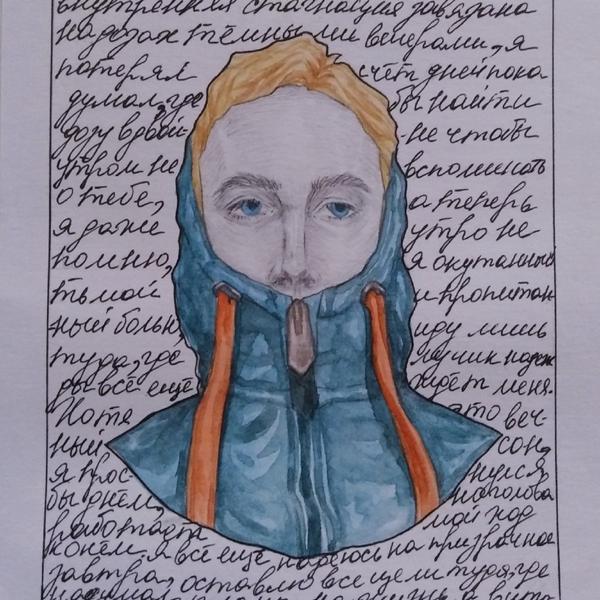 внутренняя стагнация завязана
на дозах тёмными вечерами, я
потерял счёт дней пока
думал, где бы найти
дозу вдвой- -не чтобы
утром не вспоминать
о тебе, а теперь
я даже утро не
помню, я окутанный
тьмой и пропитан-
ный болью, иду лишь
туда, где лучик надеж
ды всё ещё ждёт меня.
Хотя это веч-
ный сон,
я прос- нулся
бы днём, но голова
работает мой ход
конём, я всё ещё надеюсь на призрачное
завтра, оставлю все цели туда, где